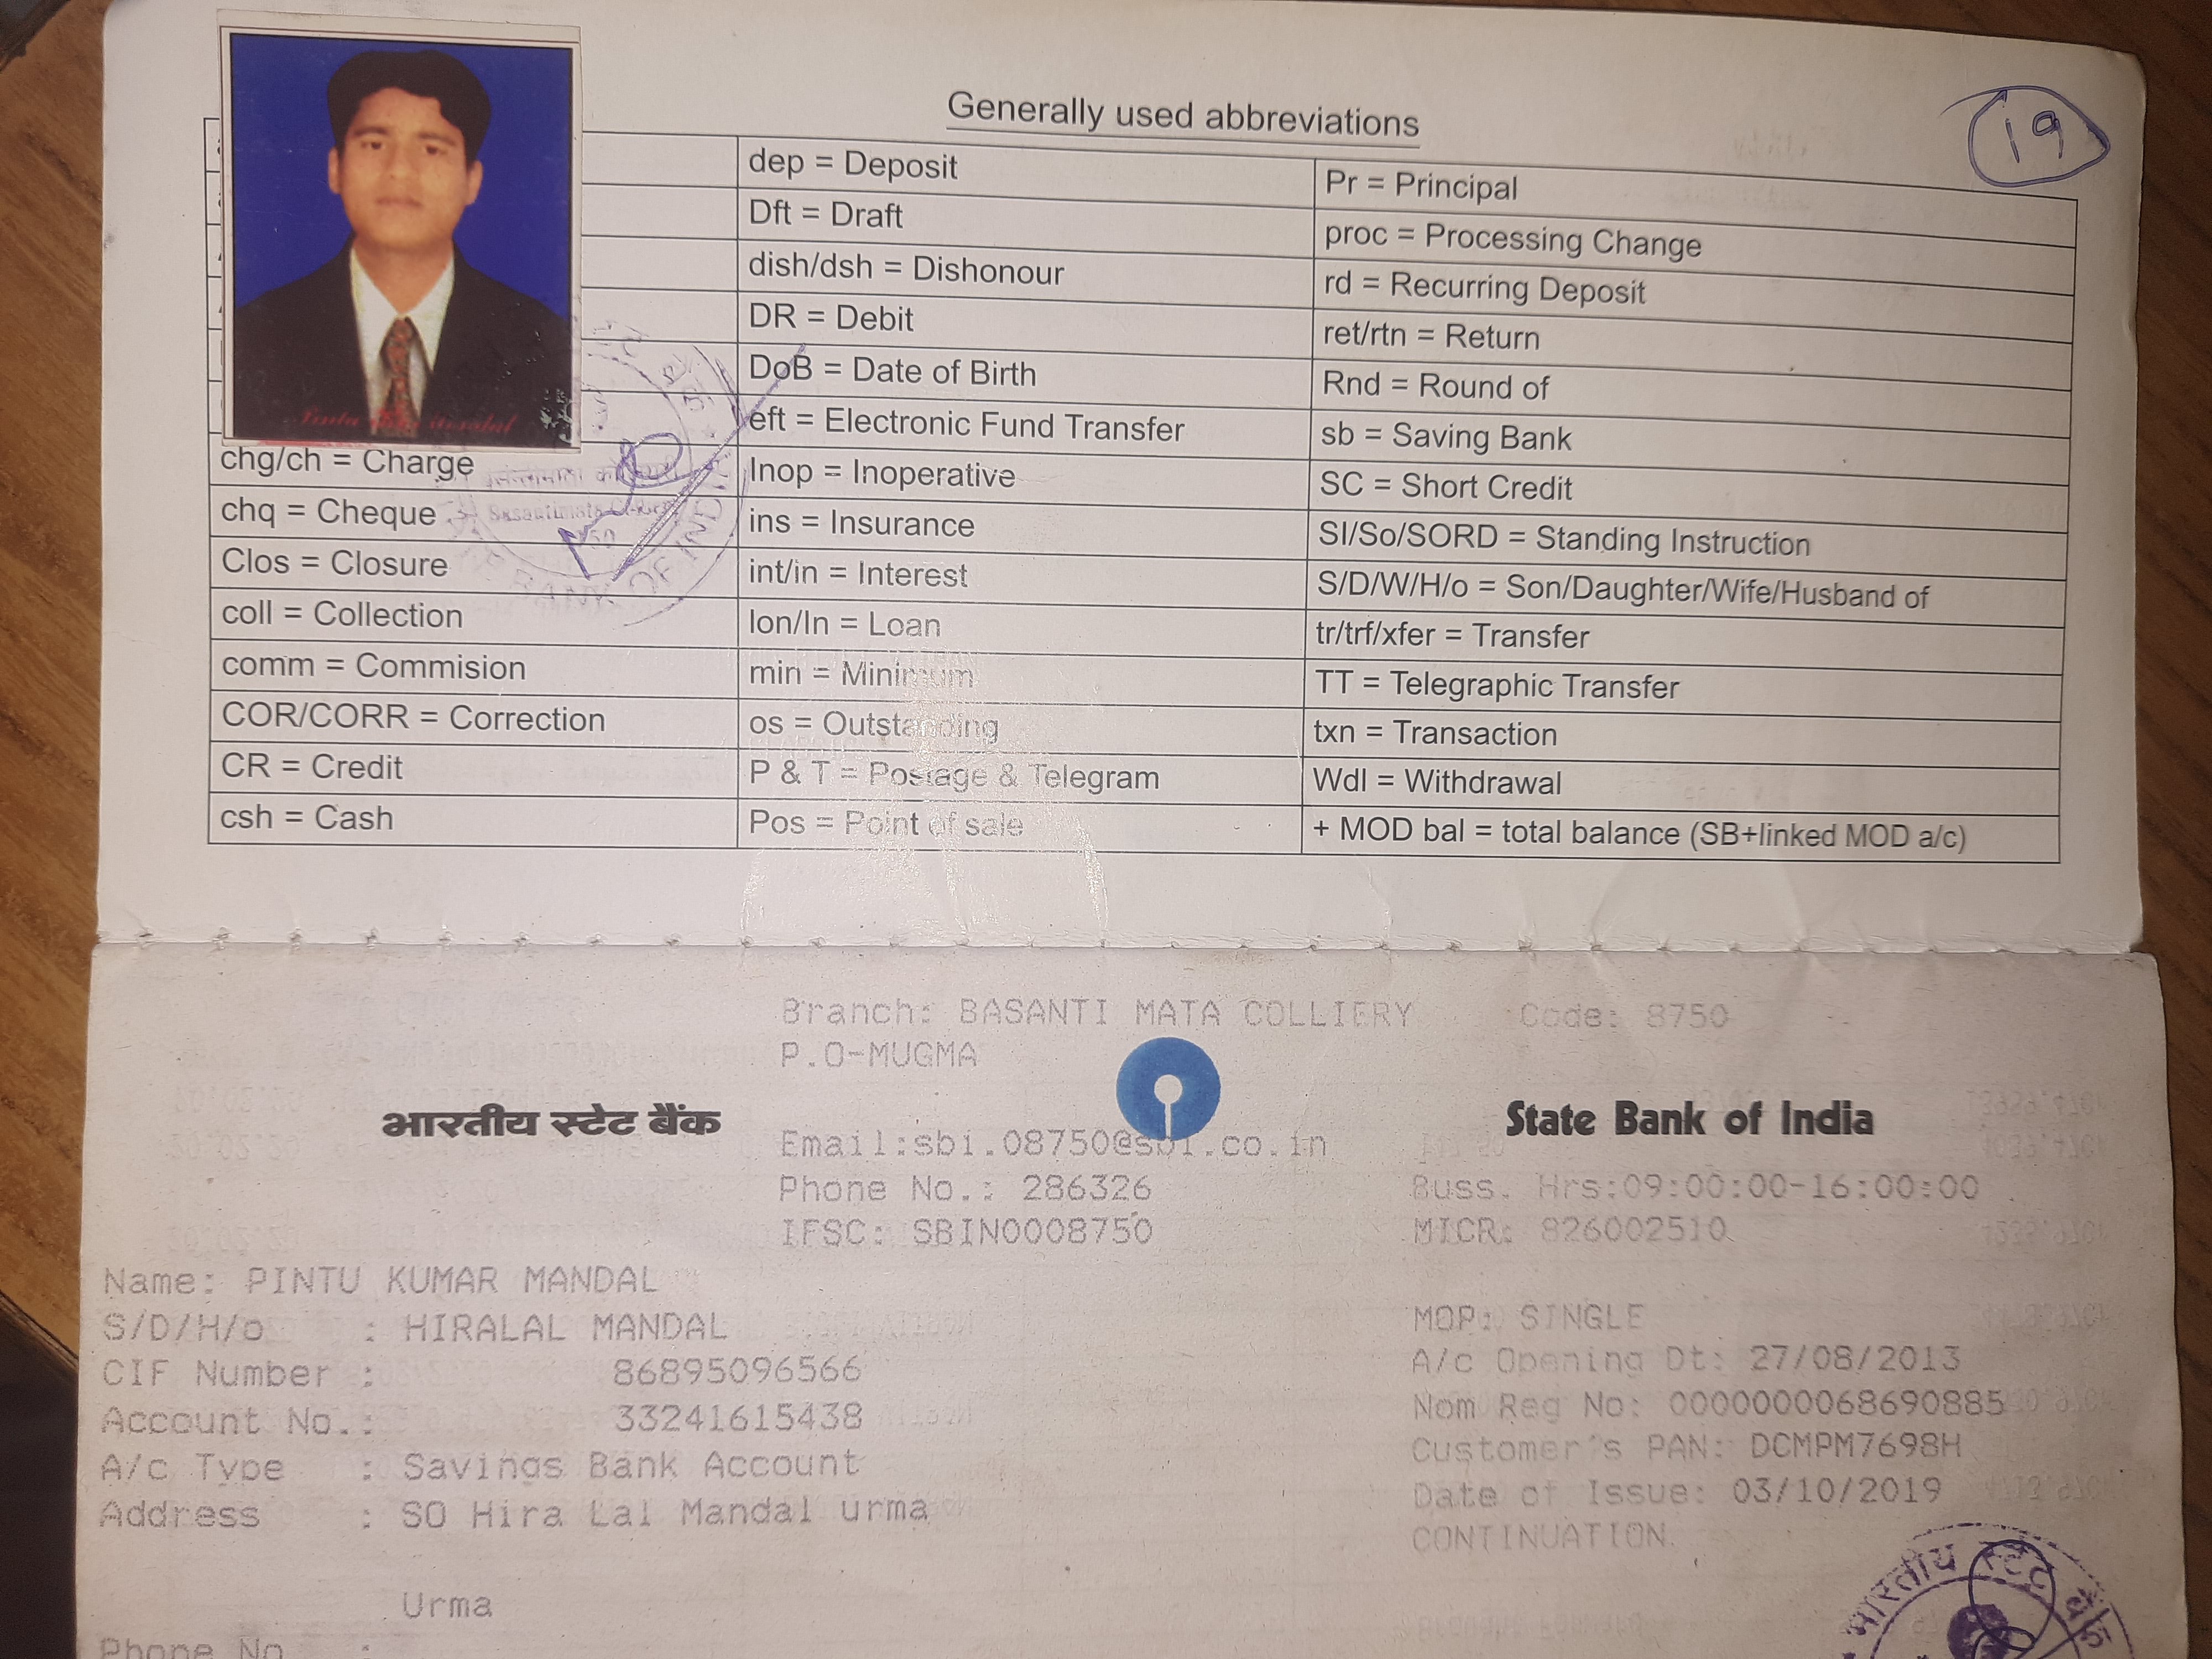 Generally used abbreviations
19
dep = Deposit
Pr = Principal
Dft = Draft
proc = Processing Change
dish/dsh = Dishonour
rd = Recurring Deposit
DR = Debit
ret/rtn = Return
DoB = Date of Birth
Rnd = Round of
eft = Electronic Fund Transfer
sb = Saving Bank
chg/ch = Charge
Inop = Inoperative
SC = Short Credit
chq = Cheque
ins = Insurance
SI/So/SORD = Standing Instruction
Clos = Closure
int/in = Interest
S/D/W/H/o = Son/Daughter/Wife/Husband of
coll = Collection
lon/ln = Loan
tr/trf/xfer = Transfer
comm = Commision
min = Minimum
TT = Telegraphic Transfer
COR/CORR = Correction
os = Outstanding
txn = Transaction
CR = Credit
P & T = Postage & Telegram
Wdl = Withdrawal
csh = Cash
Pos = Point of sale
+ MOD bal = total balance (SB+linked MOD a/c)
BANK OF INDIA
Branch: BASANTI MATA COLLIERY Code: 8750
P.O-MUGMA
भारतीय स्टेट बैंक State Bank of India
Email:sbi.08750@sbi.co.in
Phone No.: 286326 Buss. Hrs:09:00:00-16:00:00
IFSC: SBIN0008750 MICR: 826002510
Name: PINTU KUMAR MANDAL
S/D/H/o : HIRALAL MANDAL MOP: SINGLE
CIF Number : 86895096566 A/c Opening Dt: 27/08/2013
Account No.: 33241615438 Nom Reg No: 0000000068690885
A/c Type : Savings Bank Account Customer's PAN: DCMPM7698H
Address : SO Hira Lal Mandal urma Date of Issue: 03/10/2019
CONTINUATION
Urma
Phone No :
भारतीय स्टेट बैंक